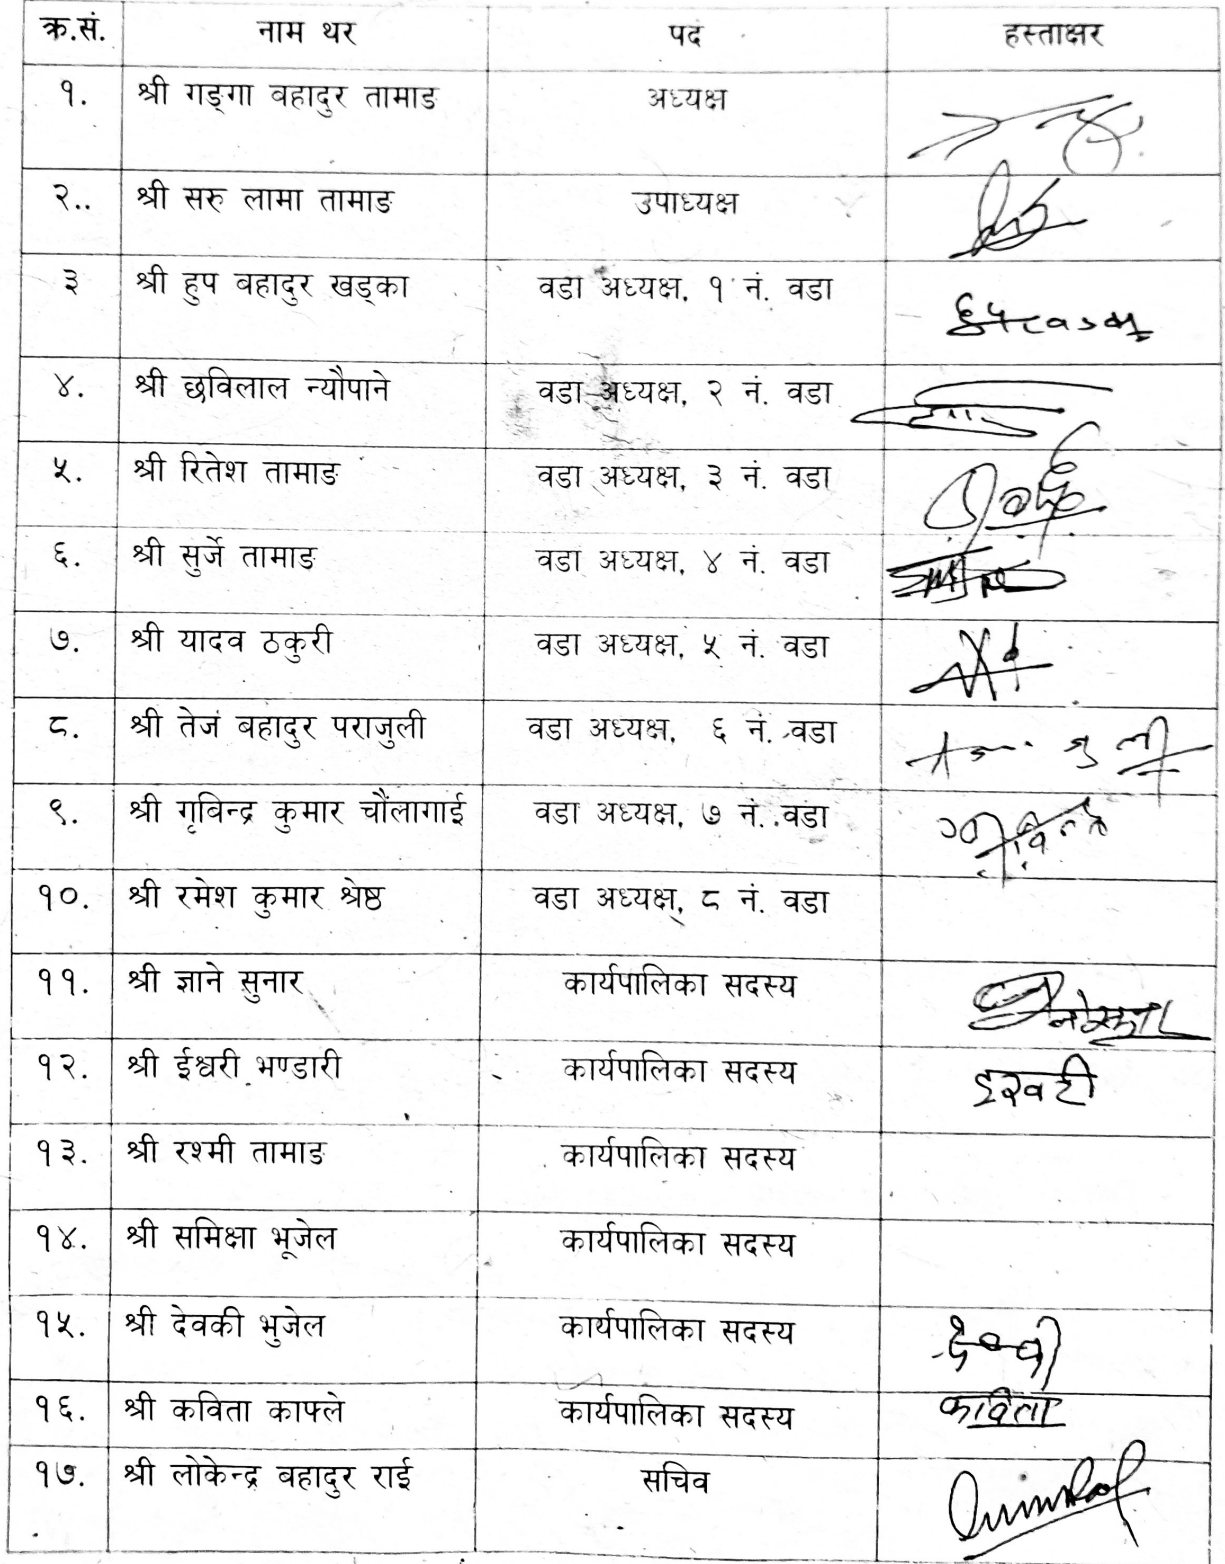 क्र.सं. नाम थर पद हस्ताक्षर
१. श्री गङ्गा बहादुर तामाङ अध्यक्ष
२.. श्री सरु लामा तामाङ उपाध्यक्ष
३ श्री हुप बहादुर खड्का वडा अध्यक्ष, १ नं. वडा
४. श्री छविलाल न्यौपाने वडा अध्यक्ष, २ नं. वडा
५. श्री रितेश तामाङ वडा अध्यक्ष, ३ नं. वडा
६. श्री सुर्जे तामाङ वडा अध्यक्ष, ४ नं. वडा
७. श्री यादव ठकुरी वडा अध्यक्ष, ५ नं. वडा
८. श्री तेज बहादुर पराजुली वडा अध्यक्ष, ६ नं. वडा
९. श्री गृविन्द्र कुमार चौंलागाई वडा अध्यक्ष, ७ नं. वडा
१०. श्री रमेश कुमार श्रेष्ठ वडा अध्यक्ष, ८ नं. वडा
११. श्री ज्ञाने सुनार कार्यपालिका सदस्य
१२. श्री ईश्वरी भण्डारी कार्यपालिका सदस्य
१३. श्री रश्मी तामाङ कार्यपालिका सदस्य
१४. श्री समिक्षा भूजेल कार्यपालिका सदस्य
१५. श्री देवकी भुजेल कार्यपालिका सदस्य
१६. श्री कविता काफ्ले कार्यपालिका सदस्य कविता
१७. श्री लोकेन्द्र बहादुर राई सचिव